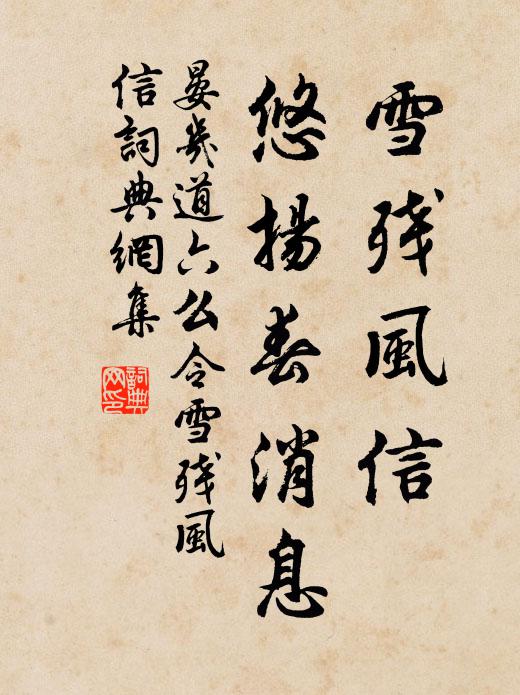 雪残風信
悠揚春消息
晏幾道六么令雪残風
信詞典網集
詞典
網印